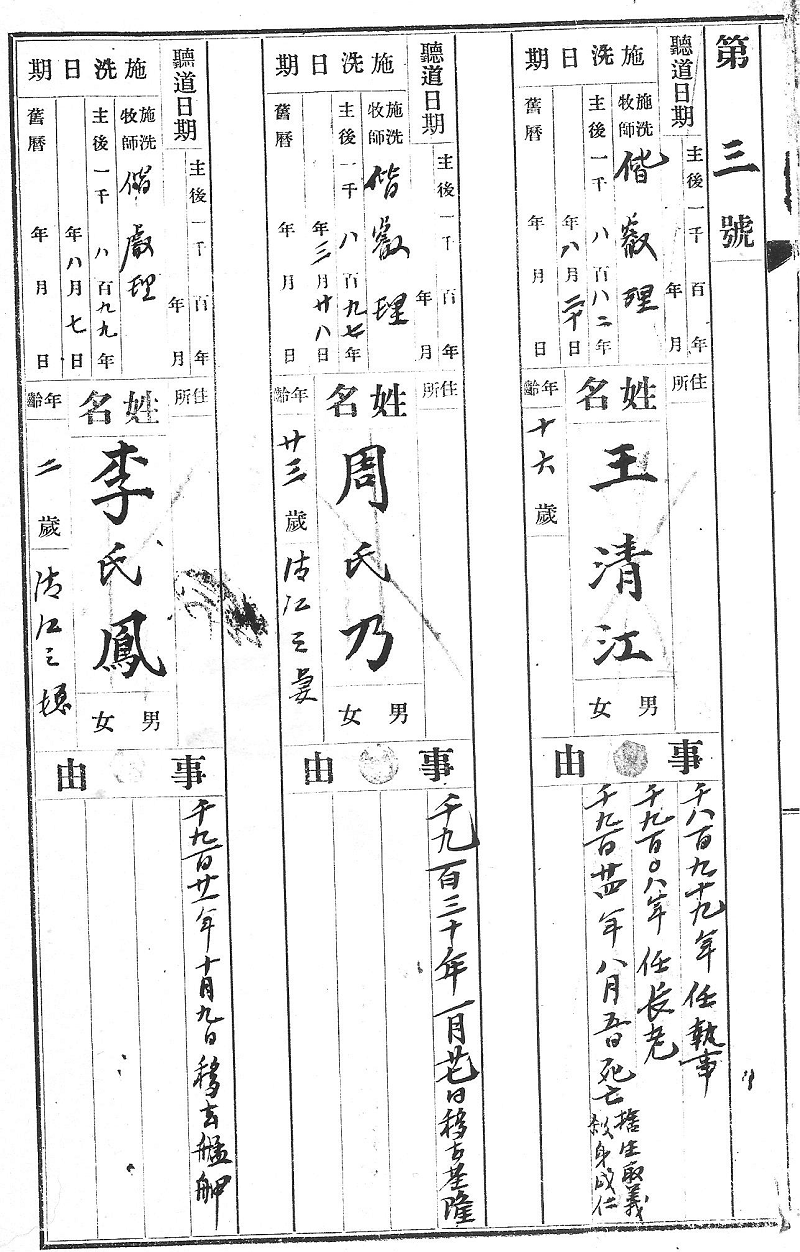 第三號
聽道日期
主後一千 百 年
年 月
施洗日期
施洗牧師
偕叡理
主後一千八百八二年
年八月二十日
舊曆 年 月 日
住所
姓名
王清江
男 女
年齡
十六歲
事由
千八百九十九年任執事
千九百〇八年任長老
千九百廿四年八月五日死亡
捨生取義
殺身成仁
聽道日期
主後一千 百 年
年 月
施洗日期
施洗牧師
偕叡理
主後一千八百九七年
年三月廿八日
舊曆 年 月 日
住所
姓名
周氏乃
男 女
年齡
廿三歲
清江之妻
事由
千九百三十年一月廿七日移去基隆
聽道日期
主後一千 百 年
年 月
施洗日期
施洗牧師
偕叡理
主後一千八百九九年
年八月七日
舊曆 年 月 日
住所
姓名
李氏鳳
男 女
年齡
二歲
清江之媳
事由
千九百廿一年十月九日移去艋舺